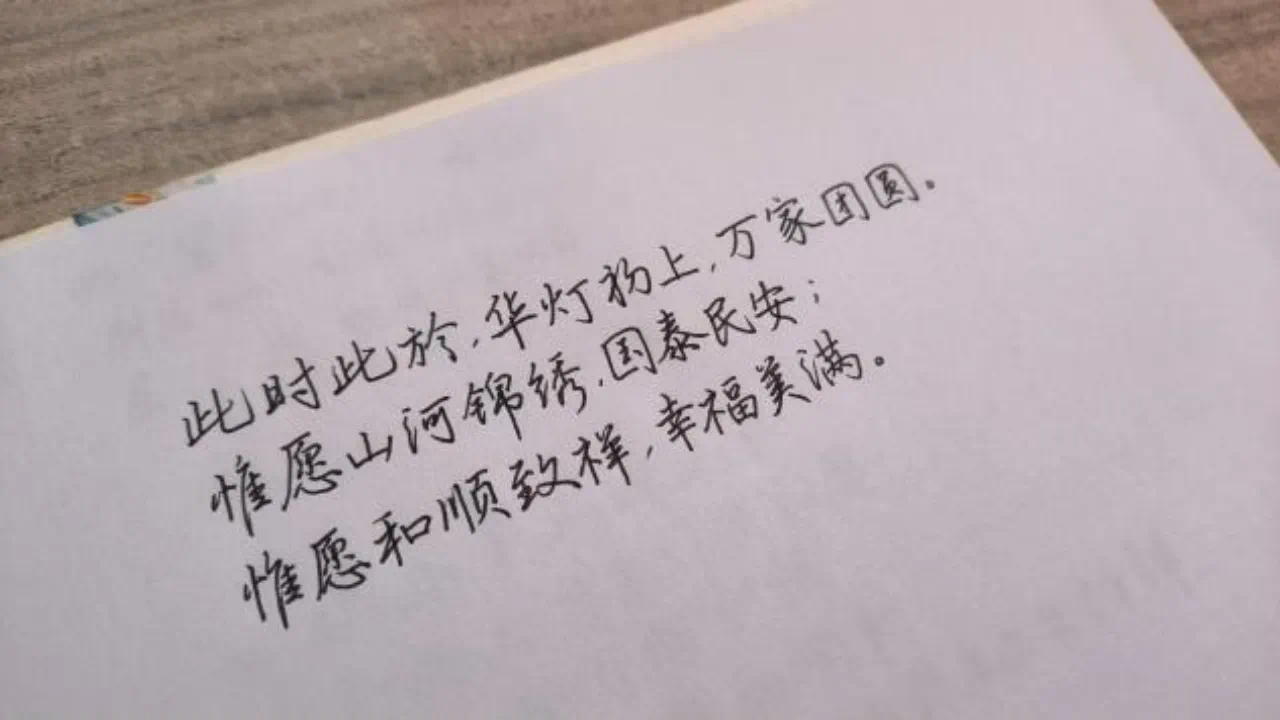 此时此於，华灯初上，万家团圆。
惟愿山河锦绣，国泰民安；
惟愿和顺致祥，幸福美满。